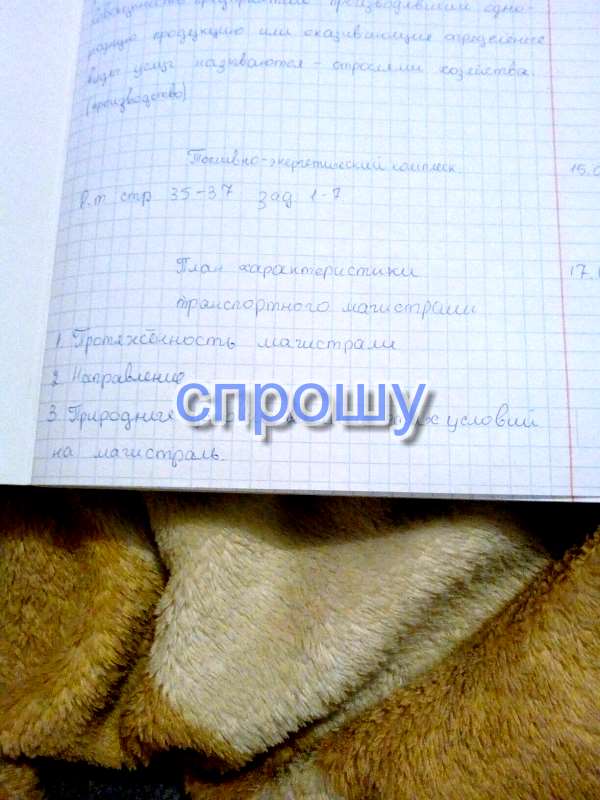 предприятий производивший одно-
родную продукцию или оказывающие определённые
виды услуг называются - отраслями хозяйства.
(производство)
Топливно-энергетический комплекс.
15.0
Р.т стр 35-37 зад 1-7
План характеристики
17.
транспортного магистрали
1. Протяжённость магистрали
2. Направление
спрошу
3. Природные условий
на магистраль.